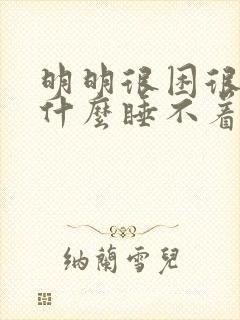 明明很困很
什麼睡不着
納蘭雪兒